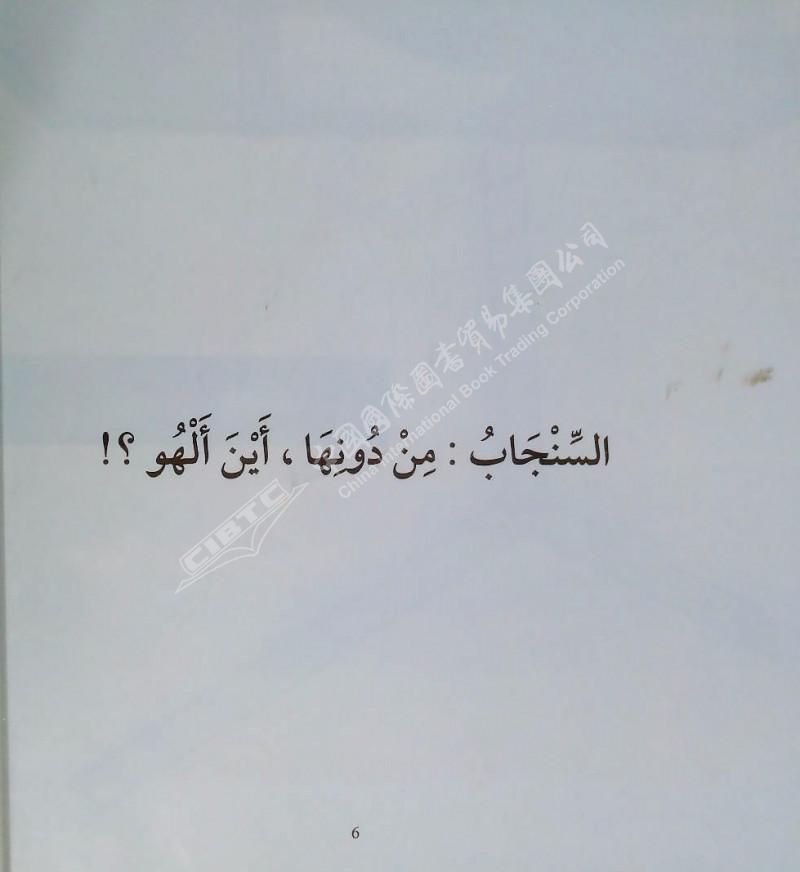 中国国際圖書貿易集團公司
China International Book Trading Corporation
السِّنْجَابُ : مِنْ دُونِهَا ، أَيْنَ أَلْهُو ؟!
CIBTC
6